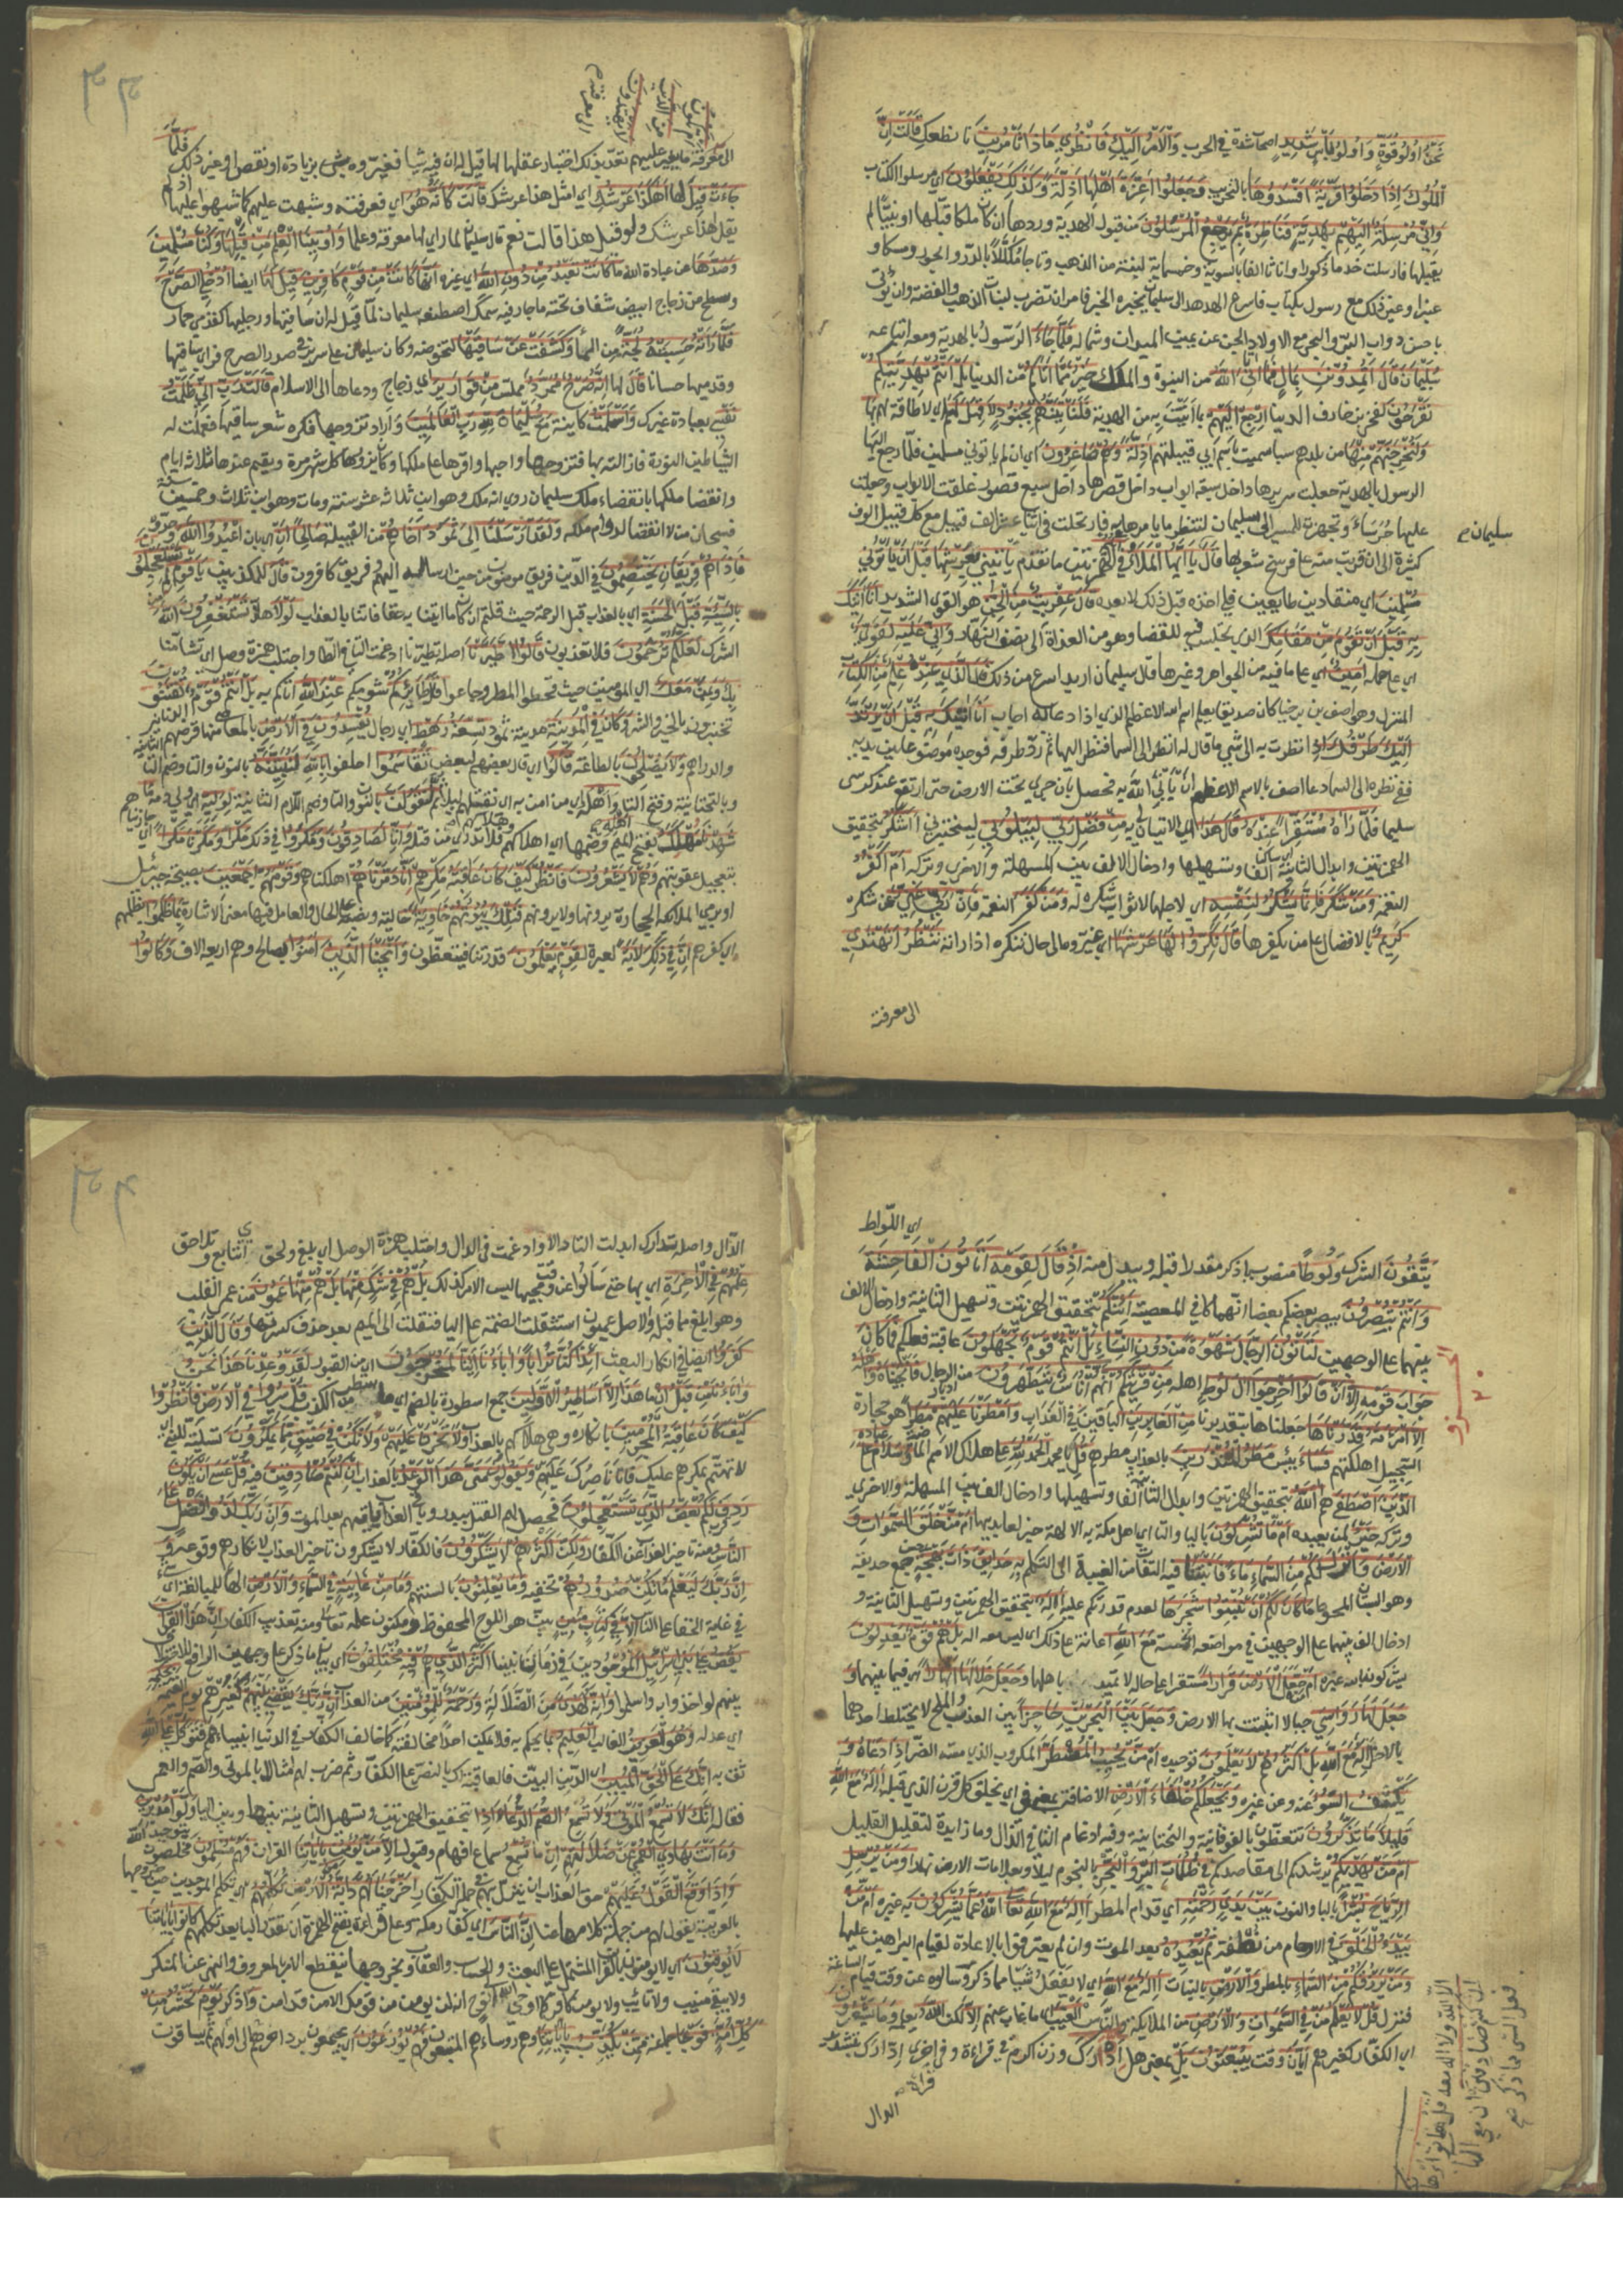 نَحْنُ اُولُوا قُوَّةٍ وَاُولُوا بَأْسٍ شَدِيدٍ اصحاب شدة في الحرب وَالْاَمْرُ اِلَيْكِ فَانْظُرِي مَاذَا تَأْمُرِينَ نا نطعك قَالَتْ اِنَّ
الْمُلُوكَ اِذَا دَخَلُوا قَرْيَةً اَفْسَدُوهَا بالتخريب وَجَعَلُوا اَعِزَّةَ اَهْلِهَا اَذِلَّةً وَكَذَلِكَ يَفْعَلُونَ اي مرسلوا الكتاب
وَاِنِّي مُرْسِلَةٌ اِلَيْهِمْ بِهَدِيَّةٍ فَنَاظِرَةٌ بِمَ يَرْجِعُ الْمُرْسَلُونَ من قبول الهدية وردها ان كان ملكا قبلها او نبيا لم
يقبلها فارسلت خدما ذكورا واناثا الفا بالسوية وخمسماية لبنة من الذهب وتاجا مكللا بالدر والجوهر ومسكا و
عنبرا وغير ذلك مع رسول بكتاب فاسرع الهدهد الى سليمان يخبره الخبر فامر ان تضرب لبنات الذهب والفضة وان يؤتى
باحسن دواب البر والبحر مع الاولاد الجن عن يمين الميدان وشماله فَلَمَّا جَاءَ الرسول بالهدية ومعه اتباعه
سُلَيْمَانَ قَالَ اَتُمِدُّونَنِ بِمَالٍ فَمَا اٰتَانِيَ اللّٰهُ من النبوة والملك خَيْرٌ مِمَّا اٰتَاكُمْ من الدنيا بَلْ اَنْتُمْ بِهَدِيَّتِكُمْ
تَفْرَحُونَ لفخركم بزخارف الدنيا اِرْجِعْ اِلَيْهِمْ بما اتيت به من الهدية فَلَنَأْتِيَنَّهُمْ بِجُنُودٍ لَا قِبَلَ لَهُمْ اي لا طاقة لهم بِهَا
وَلَنُخْرِجَنَّهُمْ مِنْهَا من بلدهم سبا سميت باسم ابي قبيلتهم اَذِلَّةً وَهُمْ صَاغِرُونَ اي ان لم ياتوني مسلمين فلما رجع اليها
الرسول بالهدية جعلت سريرها داخل سبعة ابواب داخل قصرها داخل سبع قصور غلقت الابواب وجعلت
عليها حرساء وتجهزت للمسير الى سليمان لتنظر ما يامرها به فارتحلت في اثنا عشر الف قيل مع كل قيل الوف
سليمان ع
كثيرة الى ان قربت منه على فرسخ شعر بها قَالَ يَا اَيُّهَا الْمَلَأُ في الهمزتين ما تقدم اَيُّكُمْ يَأْتِينِي بِعَرْشِهَا قَبْلَ اَنْ يَأْتُونِي
مُسْلِمِينَ اي منقادين طايعين فلي اخذه قبل ذلك لا بعده قَالَ عِفْرِيتٌ مِنَ الْجِنِّ هو القوي الشديد اَنَا اٰتِيكَ
بِهِ قَبْلَ اَنْ تَقُومَ مِنْ مَقَامِكَ الذي تجلس فيه للقضا وهو من الغداة الى نصف النهار وَاِنِّي عَلَيْهِ لَقَوِيٌّ
اي على حمله اَمِينٌ اي على ما فيه من الجواهر وغيرها قال سليمان اريد اسرع من ذلك قَالَ الَّذِي عِنْدَهُ عِلْمٌ مِنَ الْكِتَابِ
المنزل وهو اصف بن برخيا كان صديقا يعلم اسم الله الاعظم الذي اذا دعا به اجاب اَنَا اٰتِيكَ بِهِ قَبْلَ اَنْ يَرْتَدَّ
اِلَيْكَ طَرْفُكَ اذا نظرت به الى شي ما قال له انظر الى السما فنظر اليها ثم رد طرفه فوجده موضوعا بين يديه
ففي نظره الى السماء دعا اصف بالاسم الاعظم ان يأتي اللّٰه به فحصل بان جرى تحت الارض حتى ارتفع عند كرسي
سليمان فَلَمَّا رَاٰهُ مُسْتَقِرًّا عِنْدَهُ قَالَ هَذَا اي الاتيان لي به مِنْ فَضْلِ رَبِّي لِيَبْلُوَنِي ليختبرني ءَاَشْكُرُ بتحقيق
الهمزتين وابدال الثانية الفا وتسهيلها وادخال الالف بين المسهلة والاخرى وتركه اَمْ اَكْفُرُ
النعمة وَمَنْ شَكَرَ فَاِنَّمَا يَشْكُرُ لِنَفْسِهِ اي لاجلها لان ثواب شكره له وَمَنْ كَفَرَ النعمة فَاِنَّ رَبِّي غَنِيٌّ عن شكره
كَرِيمٌ بالافضال على من يكفرها قَالَ نَكِّرُوا لَهَا عَرْشَهَا اي غيروه الى حال تنكره اذا راته نَنْظُرْ اَتَهْتَدِي
الى معرفته
اَمْ تَكُونُ
مِنَ الَّذِينَ
لَا يَهْتَدُونَ
الى معرفته
الى معرفة ما يغير عليهم قصد بذلك اختبار عقلها لما قيل له ان فيه شيا فغيروه بزيادة او نقص او غير ذلك فَلَمَّا
جَاءَتْ قِيلَ لها اَهَكَذَا عَرْشُكِ اي امثل هذا عرشك قَالَتْ كَاَنَّهُ هُوَ اي فعرفته وشبهت عليهم كما شبهوا عليها اذ لم
يقل اهذا عرشك ولو قيل هذا قالت نعم قال سليمان لما راى لها معرفة وعلما وَاُوتِينَا الْعِلْمَ مِنْ قَبْلِهَا وَكُنَّا مُسْلِمِينَ
وَصَدَّهَا عن عبادة اللّٰه مَا كَانَتْ تَعْبُدُ مِنْ دُونِ اللّٰهِ اي غيره اِنَّهَا كَانَتْ مِنْ قَوْمٍ كَافِرِينَ قِيلَ لَهَا ايضا ادْخُلِي الصَّرْحَ
وسطح من زجاج ابيض شفاف تحته ما جار فيه سمك اصطنعه سليمان لما قيل له ان ساقيها ورجليها كقدمي حمار
فَلَمَّا رَاَتْهُ حَسِبَتْهُ لُجَّةً من الما وَكَشَفَتْ عَنْ سَاقَيْهَا لتخوضه وكان سليمان على سريره في صدر الصرح فراى ساقيها
وقدميها حسانا قَالَ لها اِنَّهُ صَرْحٌ مُمَرَّدٌ مملس مِنْ قَوَارِيرَ اي زجاج ودعاها الى الاسلام قَالَتْ رَبِّ اِنِّي ظَلَمْتُ
نَفْسِي بعبادة غيرك وَاَسْلَمْتُ كاينة مَعَ سُلَيْمَانَ لِلّٰهِ رَبِّ الْعَالَمِينَ واراد تزوجها فكره شعر ساقيها فعملت له
الشياطين النورة فازالته بها فتزوجها واحبها واقرها على ملكها وكان يزورها كل شهر مرة ويقيم عندها ثلاثة ايام
وانقضا ملكها بانقضاء ملك سليمان روي انه ملك وهو ابن ثلاثة عشر سنة ومات وهو ابن ثلاث وخمسين سنة
فسبحان من لا انقضا لدوام ملكه وَلَقَدْ اَرْسَلْنَا اِلَى ثَمُودَ اَخَاهُمْ من القبيلة صَالِحًا اَنِ اي بان اعْبُدُوا اللّٰهَ وحدوه
فَاِذَا هُمْ فَرِيقَانِ يَخْتَصِمُونَ في الدين فريق مومنون من حين ارساله اليهم وفريق كافرون قَالَ للمكذبين يَا قَوْمِ لِمَ تَسْتَعْجِلُونَ
بِالسَّيِّئَةِ قَبْلَ الْحَسَنَةِ اي بالعذاب قبل الرحمة حيث قلتم ان كان ما اتيتنا به حقا فاتنا بالعذاب لَوْلَا هلا تَسْتَغْفِرُونَ اللّٰهَ من
الشرك لَعَلَّكُمْ تُرْحَمُونَ فلا تعذبون قَالُوا اطَّيَّرْنَا اصله تطيرنا ادغمت التاء في الطا واجتلبت همزة وصل اي تشامنا
بِكَ وَبِمَنْ مَعَكَ اي المؤمنين حيث قحطوا المطر وجاعوا قَالَ طَائِرُكُمْ شومكم عِنْدَ اللّٰهِ اتاكم به بَلْ اَنْتُمْ قَوْمٌ تُفْتَنُونَ
تختبرون بالخير والشر وَكَانَ فِي الْمَدِينَةِ مدينة ثمود تِسْعَةُ رَهْطٍ اي رجال يُفْسِدُونَ فِي الْاَرْضِ بالمعاصي منها قرضهم الدنانير
والدراهم وَلَا يُصْلِحُونَ بالطاعة قَالُوا اي قال بعضهم لبعض تَقَاسَمُوا احلفوا بِاللّٰهِ لَنُبَيِّتَنَّهُ بالنون والتا وضم التا الثانية
وبالتحتانية وفتح التا وَاَهْلَهُ اي من امن به اي نقتلهم ليلا ثُمَّ لَنَقُولَنَّ بالنون والتا وضم اللام الثانية لِوَلِيِّهِ اي ولي دمه مَا
شَهِدْنَا مَهْلِكَ اَهْلِهِ بفتح الميم وضمها اي اهلاكهم فلا ندري من قتله وَاِنَّا لَصَادِقُونَ وَمَكَرُوا في ذلك مَكْرًا وَمَكَرْنَا مَكْرًا اي جازيناهم
بتعجيل عقوبتهم وَهُمْ لَا يَشْعُرُونَ فَانْظُرْ كَيْفَ كَانَ عَاقِبَةُ مَكْرِهِمْ اَنَّا دَمَّرْنَاهُمْ اهلكناهم وَقَوْمَهُمْ اَجْمَعِينَ بصيحة جبرئيل
او برمي الملائكة الحجارة يرونها ولا يرونهم فَتِلْكَ بُيُوتُهُمْ خَاوِيَةً خالية ونصبه على الحال والعامل فيها معنى الاشارة بِمَا ظَلَمُوا بظلمهم
اي كفرهم اِنَّ فِي ذَلِكَ لَاٰيَةً لعبرة لِقَوْمٍ يَعْلَمُونَ قدرتنا فيتعظون وَاَنْجَيْنَا الَّذِينَ اٰمَنُوا بصالح وهم اربعة الاف وَكَانُوا
اي اللواط
يَتَّقُونَ الشرك وَلُوطًا منصوب باذكر مقدرا قبله ويبدل منه اِذْ قَالَ لِقَوْمِهِ اَتَأْتُونَ الْفَاحِشَةَ
وَاَنْتُمْ تُبْصِرُونَ يبصر بعضكم بعضا انهماكا في المعصية اَئِنَّكُمْ بتحقيق الهمزتين وتسهيل الثانية وادخال الالف
بينهما على الوجهين لَتَأْتُونَ الرِّجَالَ شَهْوَةً مِنْ دُونِ النِّسَاءِ بَلْ اَنْتُمْ قَوْمٌ تَجْهَلُونَ عاقبة فعلكم فَمَا كَانَ
جَوَابَ قَوْمِهِ اِلَّا اَنْ قَالُوا اَخْرِجُوا اٰلَ لُوطٍ اهله مِنْ قَرْيَتِكُمْ اِنَّهُمْ اُنَاسٌ يَتَطَهَّرُونَ من ادبار الرجال فَاَنْجَيْنَاهُ وَاَهْلَهُ
اِلَّا امْرَاَتَهُ قَدَّرْنَاهَا جعلناها بتقديرنا مِنَ الْغَابِرِينَ الباقين في العذاب وَاَمْطَرْنَا عَلَيْهِمْ مَطَرًا هو حجارة
السجيل اهلكتهم فَسَاءَ بئس مَطَرُ الْمُنْذَرِينَ بالعذاب مطرهم قُلِ يا محمد الْحَمْدُ لِلّٰهِ على هلاك الامم الماضية وَسَلَامٌ عَلَى عباده
الَّذِينَ اصْطَفَى هم ءَاللّٰهُ بتحقيق الهمزتين وابدال الثانية الفا وتسهيلها وادخال الف بين المسهلة والاخرى
وتركه خَيْرٌ لمن يعبده اَمَّا تُشْرِكُونَ باليا والتا اي اهل مكة به الالهة خير لعابديها اَمَّنْ خَلَقَ السَّمَوَاتِ وَ
الْاَرْضَ وَاَنْزَلَ لَكُمْ مِنَ السَّمَاءِ مَاءً فَاَنْبَتْنَا فيه التفات من الغيبة الى التكلم بِهِ حَدَائِقَ ذَاتَ بَهْجَةٍ جمع حديقة
وهو البستان المحوط مَا كَانَ لَكُمْ اَنْ تُنْبِتُوا شَجَرَهَا لعدم قدرتكم عليه ءَاِلٰهٌ بتحقيق الهمزتين وتسهيل الثانية و
ادخال الف بينهما على الوجهين في مواضعه الخمسة مَعَ اللّٰهِ اعانه على ذلك اي ليس معه اله بَلْ هُمْ قَوْمٌ يَعْدِلُونَ
يشركون باللّٰه غيره اَمَّنْ جَعَلَ الْاَرْضَ قَرَارًا مستقرا على حاله لا تميد باهلها وَجَعَلَ خِلَالَهَا اَنْهَارًا اي فيما بينهما وَ
جَعَلَ لَهَا رَوَاسِيَ جبالا اثبتت بها الارض وَجَعَلَ بَيْنَ الْبَحْرَيْنِ حَاجِزًا بين العذب والملح لا يختلط احدهما
بالاخر ءَاِلٰهٌ مَعَ اللّٰهِ بَلْ اَكْثَرُهُمْ لَا يَعْلَمُونَ توحيده اَمَّنْ يُجِيبُ الْمُضْطَرَّ المكروب الذي مسه الضر اِذَا دَعَاهُ وَ
يَكْشِفُ السُّوءَ عنه وعن غيره وَيَجْعَلُكُمْ خُلَفَاءَ الْاَرْضِ الاضافة بمعنى في اي يخلق كل قرن الذي قبله ءَاِلٰهٌ مَعَ اللّٰهِ
قَلِيلًا مَا تَذَكَّرُونَ تتعظون بالفوقانية والتحتانية وفيه ادغام التا في الذال وما زايدة لتقليل القليل
اَمَّنْ يَهْدِيكُمْ يرشدكم الى مقاصدكم فِي ظُلُمَاتِ الْبَرِّ وَالْبَحْرِ بالنجوم ليلا وبعلامات الارض نهارا وَمَنْ يُرْسِلُ
الرِّيَاحَ بُشْرًا باليا والنون بَيْنَ يَدَيْ رَحْمَتِهِ اي قدام المطر ءَاِلٰهٌ مَعَ اللّٰهِ تَعَالَى اللّٰهُ عَمَّا يُشْرِكُونَ به غيره اَمَّنْ
يَبْدَؤُا الْخَلْقَ في الارحام من نطفة ثُمَّ يُعِيدُهُ بعد الموت وان لم يعترفوا بالاعادة لقيام البراهين عليها
وَمَنْ يَرْزُقُكُمْ مِنَ السَّمَاءِ بالمطر وَالْاَرْضِ بالنبات ءَاِلٰهٌ مَعَ اللّٰهِ اي لا يفعل شيا مما ذكر وسالوه عن وقت قيام الساعة
فنزل قُلْ لَا يَعْلَمُ مَنْ فِي السَّمَوَاتِ وَالْاَرْضِ من الملايكة والناس الْغَيْبَ اي ما غاب عنهم اِلَّا لكن اللّٰهُ يعلمه وَمَا يَشْعُرُونَ
اي الكفار كغيرهم اَيَّانَ وقت يُبْعَثُونَ بَلِ بمعنى هل اَدْرَكَ وزن اكرم في قراءة وفي اخرى ادّارك بتشديد
الدال
الا اللّٰه ولا اله معه قُلْ هَاتُوا بُرْهَانَكُمْ
اِنْ كُنْتُمْ صَادِقِينَ ان معي الها
فعل الشي مما ذكر صح
الدال واصله تدارك ابدلت التاء دالا وادغمت في الدال واجتلبت همزة الوصل اي بلغ ولحق او تتابع وتلاحق
عِلْمُهُمْ فِي الْاٰخِرَةِ اي بها حتى سالوا عن وقت مجيها ليس الامر كذلك بَلْ هُمْ فِي شَكٍّ مِنْهَا بَلْ هُمْ مِنْهَا عَمُونَ من عمي القلب
وهو ابلغ مما قبله والاصل عميون استثقلت الضمة على اليا فنقلت الى الميم بعد حذف كسرتها وَقَالَ الَّذِينَ
كَفَرُوا ايضا في انكار البعث اَئِذَا كُنَّا تُرَابًا وَاٰبَاؤُنَا اَئِنَّا لَمُخْرَجُونَ اي من القبور لَقَدْ وُعِدْنَا هَذَا نَحْنُ
وَاٰبَاؤُنَا مِنْ قَبْلُ اِنْ ما هَذَا اِلَّا اَسَاطِيرُ الْاَوَّلِينَ جمع اسطورة بالضم اي ما سطر من الكذب قُلْ سِيرُوا فِي الْاَرْضِ فَانْظُرُوا
كَيْفَ كَانَ عَاقِبَةُ الْمُجْرِمِينَ بانكاره وهي هلاكهم بالعذاب وَلَا تَحْزَنْ عَلَيْهِمْ وَلَا تَكُنْ فِي ضَيْقٍ مِمَّا يَمْكُرُونَ تسلية للنبي اي
لا تهتم بمكرهم عليك فانا ناصرك عليهم وَيَقُولُونَ مَتَى هَذَا الْوَعْدُ بالعذاب اِنْ كُنْتُمْ صَادِقِينَ فيه قُلْ عَسَى اَنْ يَكُونَ
رَدِفَ قرب لَكُمْ بَعْضُ الَّذِي تَسْتَعْجِلُونَ فحصل لهم القتل ببدر وباقي العذاب ياتيهم بعد الموت وَاِنَّ رَبَّكَ لَذُو فَضْلٍ عَلَى
النَّاسِ ومنه تاخير العذاب عن الكفار وَلَكِنَّ اَكْثَرَهُمْ لَا يَشْكُرُونَ فالكفار لا يشكرون تاخير العذاب لانكارهم وقوعه
وَاِنَّ رَبَّكَ لَيَعْلَمُ مَا تُكِنُّ صُدُورُهُمْ تخفيه وَمَا يُعْلِنُونَ بالسنتهم وَمَا مِنْ غَائِبَةٍ فِي السَّمَاءِ وَالْاَرْضِ الها للمبالغة اي شي
في غاية الخفا على الناس اِلَّا فِي كِتَابٍ مُبِينٍ بين هو اللوح المحفوظ ومكنون علمه تعالى ومنه تعذيب الكفار اِنَّ هَذَا الْقُرْاٰنَ
يَقُصُّ عَلَى بَنِي اِسْرَائِيلَ الموجودين في زمان نبينا اَكْثَرَ الَّذِي هُمْ فِيهِ يَخْتَلِفُونَ اي ببيان ما ذكر على وجهين الرافع للاختلاف
بينهم لو اخذوا به واسلموا وَاِنَّهُ لَهُدًى من الضلالة وَرَحْمَةٌ لِلْمُؤْمِنِينَ من العذاب اِنَّ رَبَّكَ يَقْضِي بَيْنَهُمْ كغيرهم يوم القيمة بِحُكْمِهِ
اي عدله وَهُوَ الْعَزِيزُ الغالب الْعَلِيمُ بما يحكم به فلا يمكن احدا مخالفته كما خالف الكفار في الدنيا انبياءهم فَتَوَكَّلْ عَلَى اللّٰهِ
ثق به اِنَّكَ عَلَى الْحَقِّ الْمُبِينِ اي الدين البين فالعاقبة لك بالنصر على الكفار ثم ضرب لهم امثالا بالموتى والصم والعمي
فقال اِنَّكَ لَا تُسْمِعُ الْمَوْتَى وَلَا تُسْمِعُ الصُّمَّ الدُّعَاءَ اِذَا بتحقيق الهمزتين وتسهيل الثانية بينها وبين اليا وَلَّوْا مُدْبِرِينَ
وَمَا اَنْتَ بِهَادِي الْعُمْيِ عَنْ ضَلَالَتِهِمْ اِنْ ما تُسْمِعُ سماع افهام وقبول اِلَّا مَنْ يُؤْمِنُ بِاٰيَاتِنَا القران فَهُمْ مُسْلِمُونَ مخلصون بتوحيد اللّٰه
وَاِذَا وَقَعَ الْقَوْلُ عَلَيْهِمْ حق العذاب ان ينزل بهم في جملة الكفار اَخْرَجْنَا لَهُمْ دَابَّةً مِنَ الْاَرْضِ تُكَلِّمُهُمْ اي تكلم الموجودين حين خروجها
بالعربية تقول لهم من جملة كلامها عنا اِنَّ النَّاسَ اي كفار مكة وعلى قراءة بفتح الهمزة ان تقدر البا بعد تكلمهم كَانُوا بِاٰيَاتِنَا
لَا يُوقِنُونَ اي لا يومنون بالقران المشتمل على البعث والحساب والعقاب وبخروجها ينقطع الامر بالمعروف والنهي عن المنكر
ولا يبقى منيب ولا تايب ولا يومن كافر كما اوحى اللّٰه الى نوح انه لن يومن من قومك الا من قد امن وَاذكر يَوْمَ نَحْشُرُ مِنْ
كُلِّ اُمَّةٍ فَوْجًا جماعة مِمَّنْ يُكَذِّبُ بِاٰيَاتِنَا وهم روساءهم المتبعون فَهُمْ يُوزَعُونَ اي يجمعون برد اخرهم الى اولهم ثم يساقون